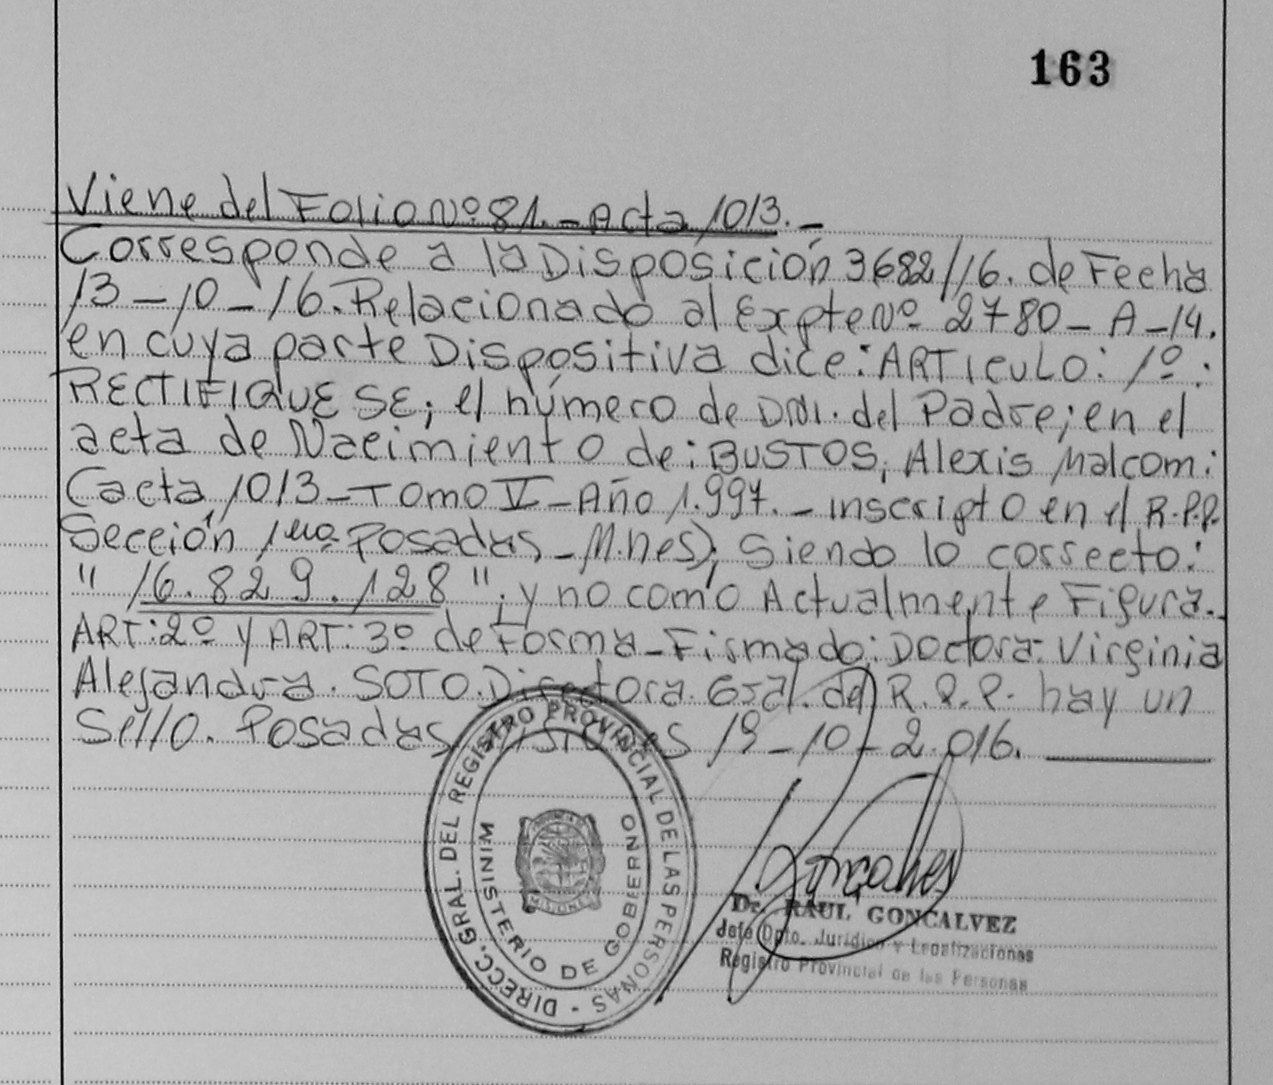 163
Viene del Folio Nº 81.- Acta 1013.-
Corresponde a la Disposición 3682/16. de Fecha
13-10-16. Relacionado al Expte Nº 2780-A-14.
en cuya parte Dispositiva dice: ARTICULO: 1º:
RECTIFIQUESE; el número de DNI. del Padre; en el
acta de Nacimiento de: BUSTOS, Alexis Malcom:
(acta 1013-Tomo V-Año 1.997.- inscripto en el R.P.P.
Sección 1era Posadas-M.nes); Siendo lo correcto:
"16.829.128"; y no como Actualmente Figura.-
ART: 2º y ART: 3º de Forma-Firmado: Doctora: Virginia
Alejandra. SOTO. Directora. Gral. del R.P.P. hay un
Sello. Posadas, Misiones 19-10-2.016.
DIRECC. GRAL. DEL REGISTRO PROVINCIAL DE LAS PERSONAS -
MINISTERIO DE GOBIERNO
PROVINCIA DE
MISIONES
Goncalves
Dr. RAUL GONCALVEZ
Jefe Dpto. Jurídico y Legalizaciones
Registro Provincial de las Personas